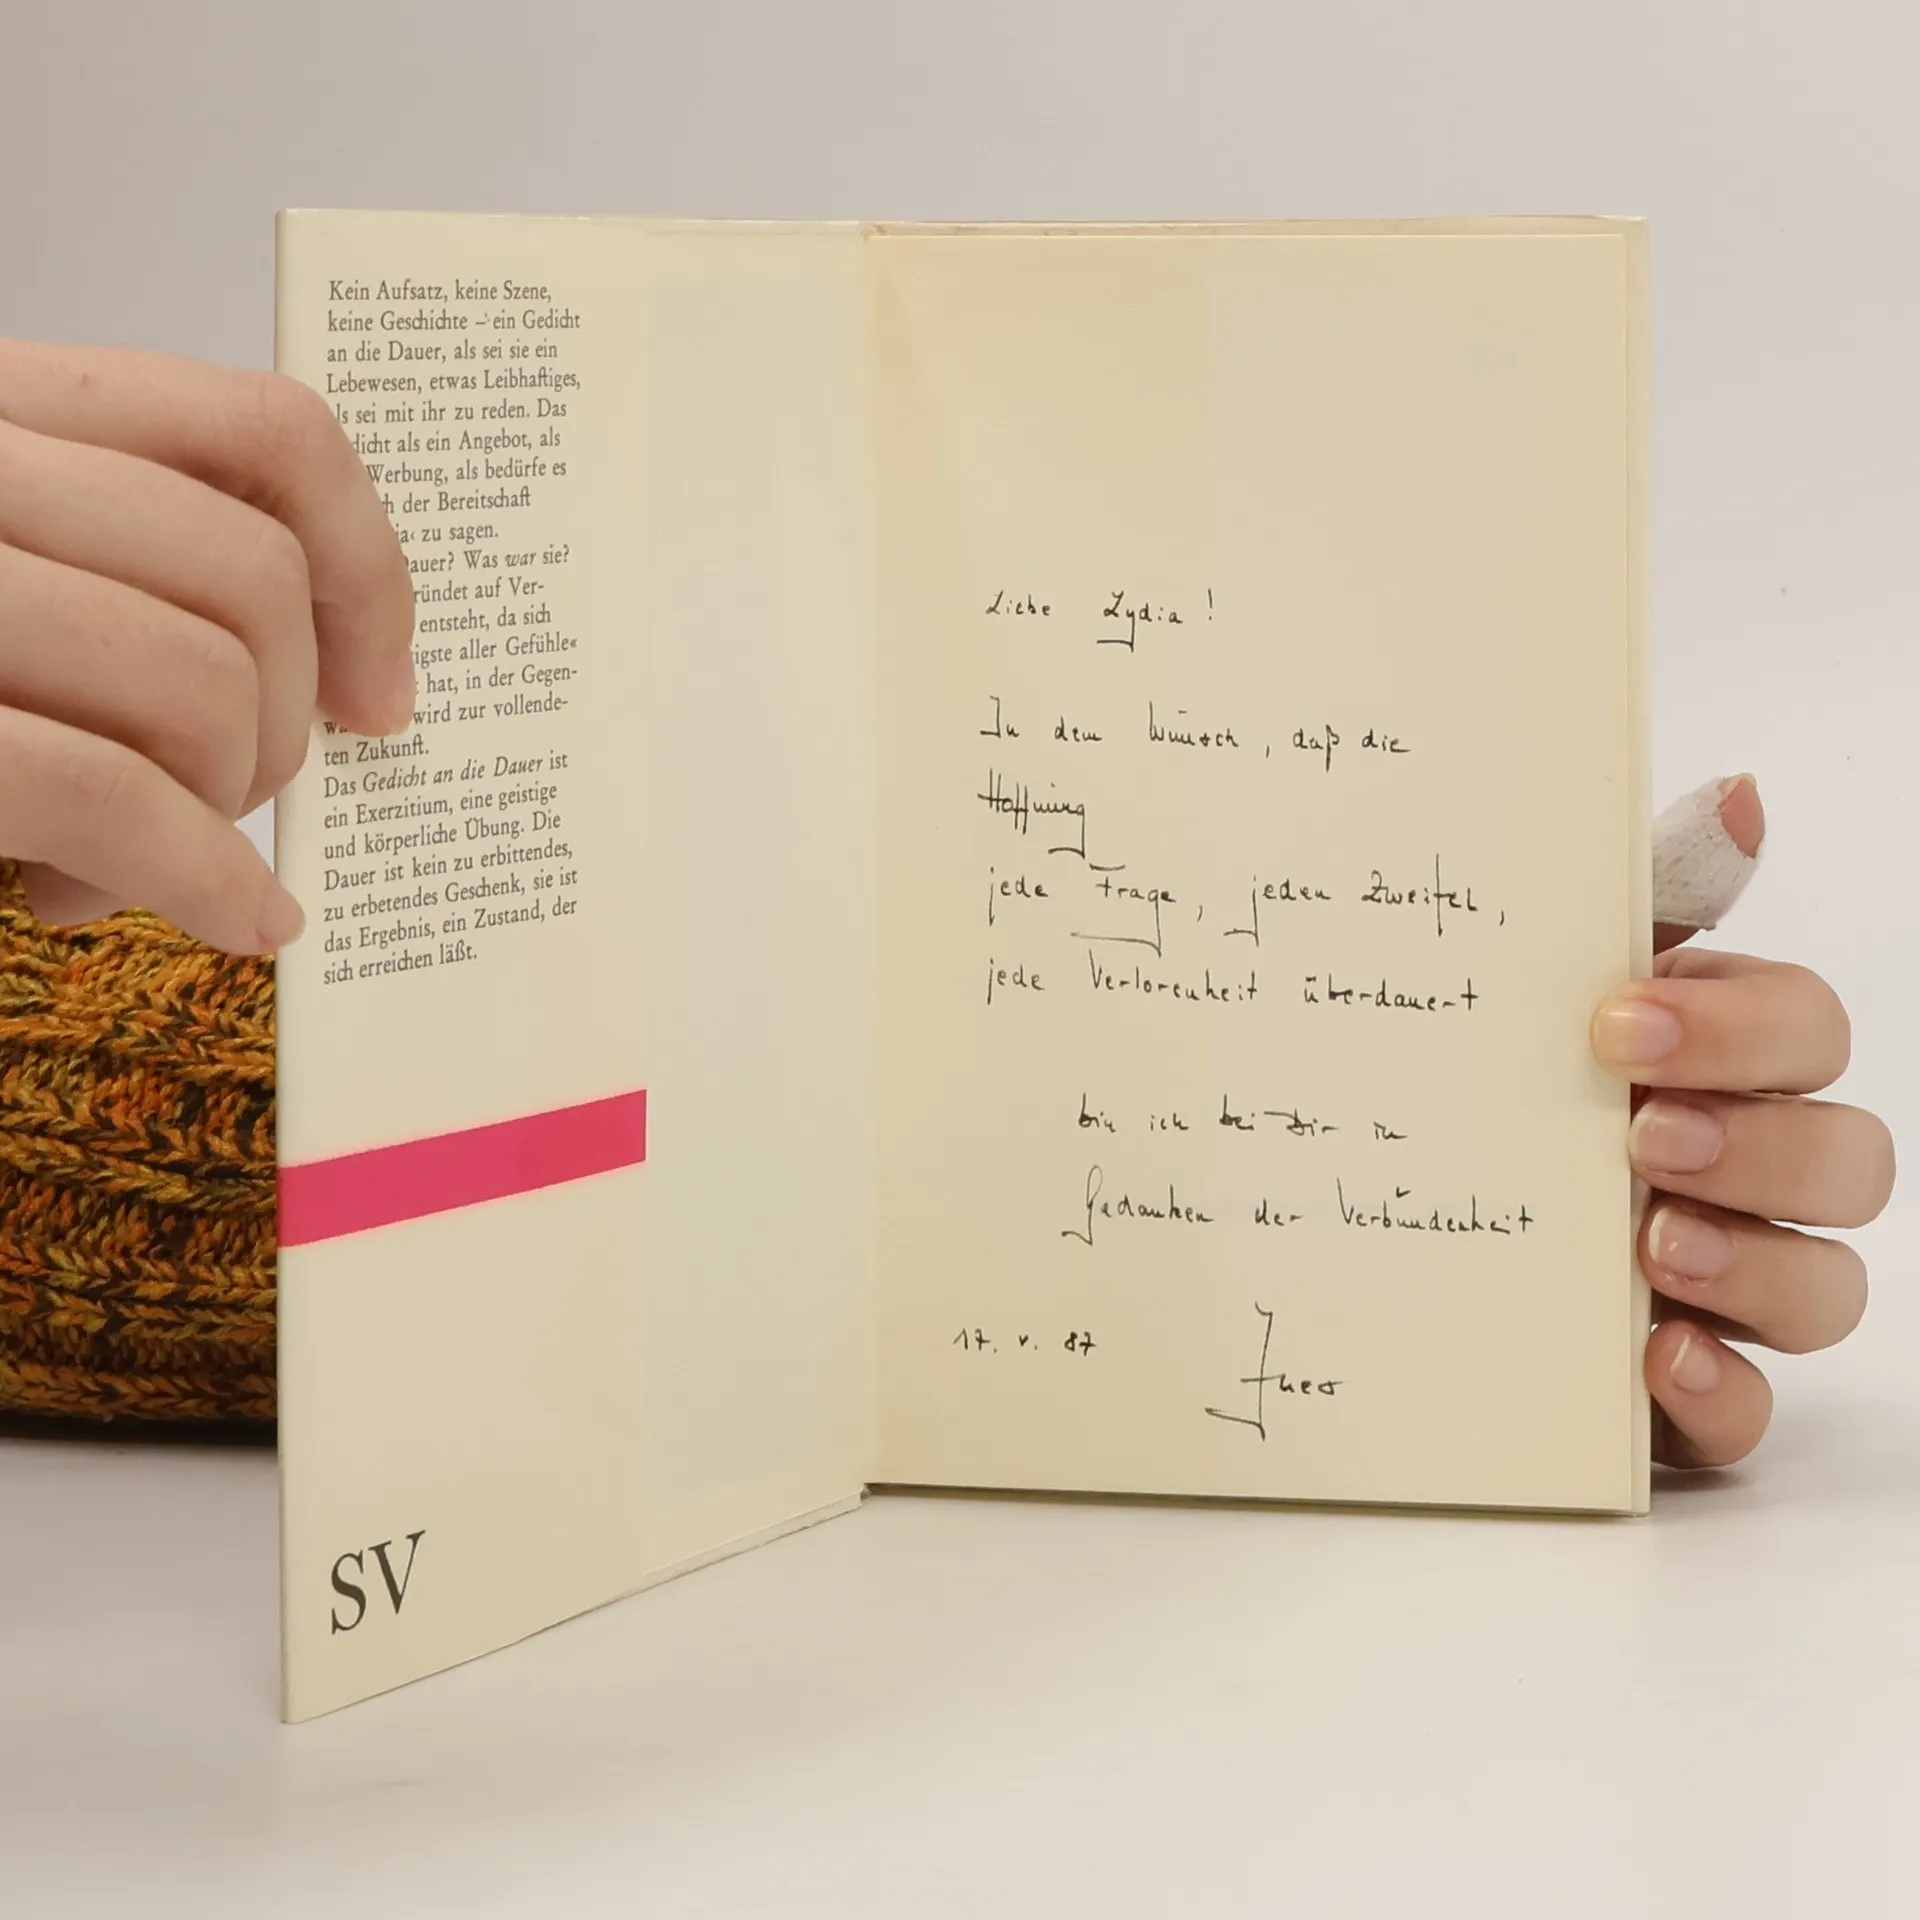 Kein Aufsatz, keine Szene,
keine Geschichte – ein Gedicht
an die Dauer, als sei sie ein
Lebewesen, etwas Leibhaftiges,
ls sei mit ihr zu reden. Das
dicht als ein Angebot, als
Werbung, als bedürfe es
h der Bereitschaft
ja‹ zu sagen.
Dauer? Was war sie?
ründet auf Ver-
entsteht, da sich
igste aller Gefühle«
hat, in der Gegen-
wird zur vollende-
ten Zukunft.
Das Gedicht an die Dauer ist
ein Exerzitium, eine geistige
und körperliche Übung. Die
Dauer ist kein zu erbittendes,
zu erbetendes Geschenk, sie ist
das Ergebnis, ein Zustand, der
sich erreichen läßt.
SV
Liebe Lydia!
In dem Wunsch, daß die
Hoffnung
jede Frage, jeden Zweifel,
jede Verlorenheit überdauert
bin ich bei Dir in
Gedanken der Verbundenheit
17. V. 87